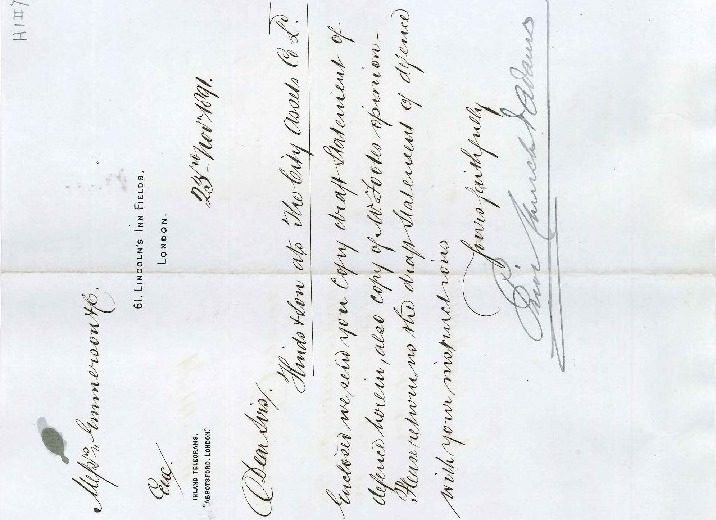 A1#7
Messrs Emmerson & Co.
Enc/
INLAND TELEGRAMS,
"ABBOTSFORD, LONDON"
61, LINCOLN'S INN FIELDS,
LONDON.
25th Nov 1891.
Dear Sirs,
Hinds & Son ats The City Assets Co Ld
Enclosed we send you copy draft Statement of
defence herein, also copy of Mr Foote's opinion -
Please return us the draft Statement of defence
with your instructions
Yours faithfully
Church Adams